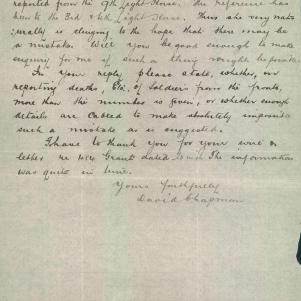 reported from the 9th Light Horse. The reference has
been to the 3rd & 4th Light Horse. This are very natu
rally is clinging to the hope that there may be
a mistake. Will you be good enough to make
enquiry for me if such a thing might be possible
In your reply, please state, whether, in
reporting deaths, etc. of soldiers from the fronts,
more than the number is given, or whether enough
details are cabled to make absolutely impossible
such a mistake as is suggested.
I have to thank you for your wire &
letter re Grant dated The information
was quite in time.
Yours faithfully
David Chapman